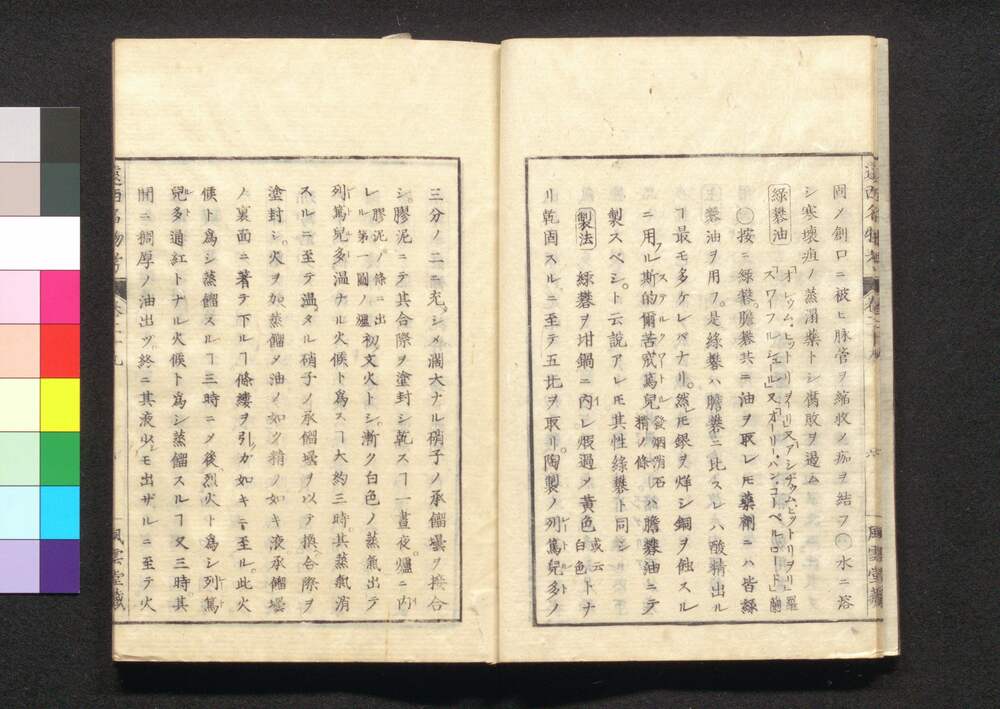 同ノ創口ニ被ヒ脉管ヲ縮收シ痂ヲ結フ㊀水ニ溶
シ寒壊疽ノ蒸溻薬トシ舊敗ヲ過ム
緑礬油
㊀按ニ緑礬膽礬共ニ油ヲ取レモ藥劑ニハ皆緑
礬油ヲ用フ是緑礬ハ膽礬ニ比スレハ酸精出ル
ヿ最モ多ケレバナリ。然レ𪜈銀ヲ烊シ銅ヲ蝕スル
ニ用フル斯的爾苦
ステルクワートル
發烟消石
精ノ條
ハ膽礬油ニテ
製スベシト云説アレ𪜈其性緑礬ト同シ
製法 緑礬ヲ坩鍋ニ内レ煆過シ黄色
或云
白色
トナ
リ乾固スルニ至テ五比ヲ取リ。陶製ノ列篤兒多ノ
三分ノ二ニ充シメ濶大ナル硝子ノ承餾壜ヲ接合
シ。膠泥ニテ其合際ヲ塗封シ乾スヿ一晝夜。爐ニ内
レ
膠泥ノ條ニ出
ル第一圖ノ爐
初文火トシ漸ク白色ノ蒸氣出テ
列篤兒多温ナル火候ト為スヿ大約三時。其蒸氣消
スルニ至テ温メタル硝子ノ承餾壜ヲ以テ換ヘ合際ヲ
塗封シ。火ヲ加ヘ蒸餾シ油ノ如ク精ノ如キ液承餾壜
ノ裏面ニ著テ下ルヿ條縷ヲ引クガ如キニ至ル。此火
候ト為シ蒸餾スルヿ三時ニシテ後烈火ト為シ列篤
兒多通紅トナル火候ト為シ蒸餾スルヿ又三時其
間ニ稠厚ノ油出ツ。終ニ其液少シモ出ザルニ至テ火